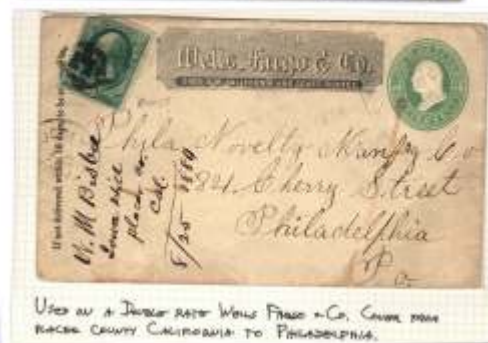 Wells, Fargo & Co.
If not delivered within 10 days, to be
W. M. Bisbee
Iowa Hill
Placer Co.
Cal.
8/25 1884
Phila Novelty Manfg Co
821 Cherry Street
Philadelphia
Pa
USED ON A DOUBLE RATE WELLS FARGO & CO. COVER FROM
PLACER COUNTY CALIFORNIA TO PHILADELPHIA.